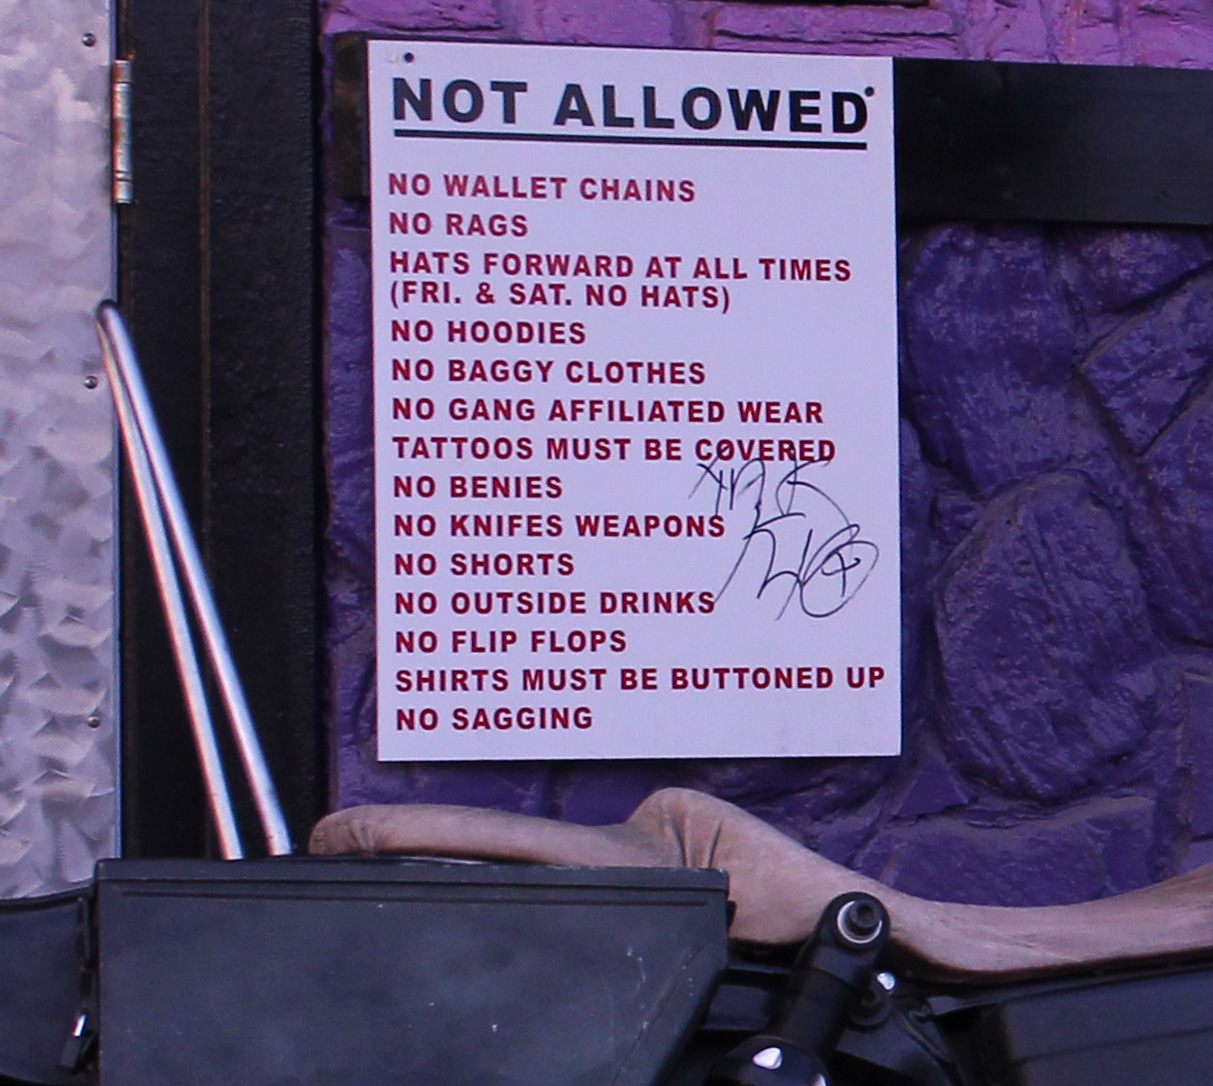 NOT ALLOWED
NO WALLET CHAINS
NO RAGS
HATS FORWARD AT ALL TIMES
(FRI. & SAT. NO HATS)
NO HOODIES
NO BAGGY CLOTHES
NO GANG AFFILIATED WEAR
TATTOOS MUST BE COVERED
NO BENIES
NO KNIFES WEAPONS
NO SHORTS
NO OUTSIDE DRINKS
NO FLIP FLOPS
SHIRTS MUST BE BUTTONED UP
NO SAGGING